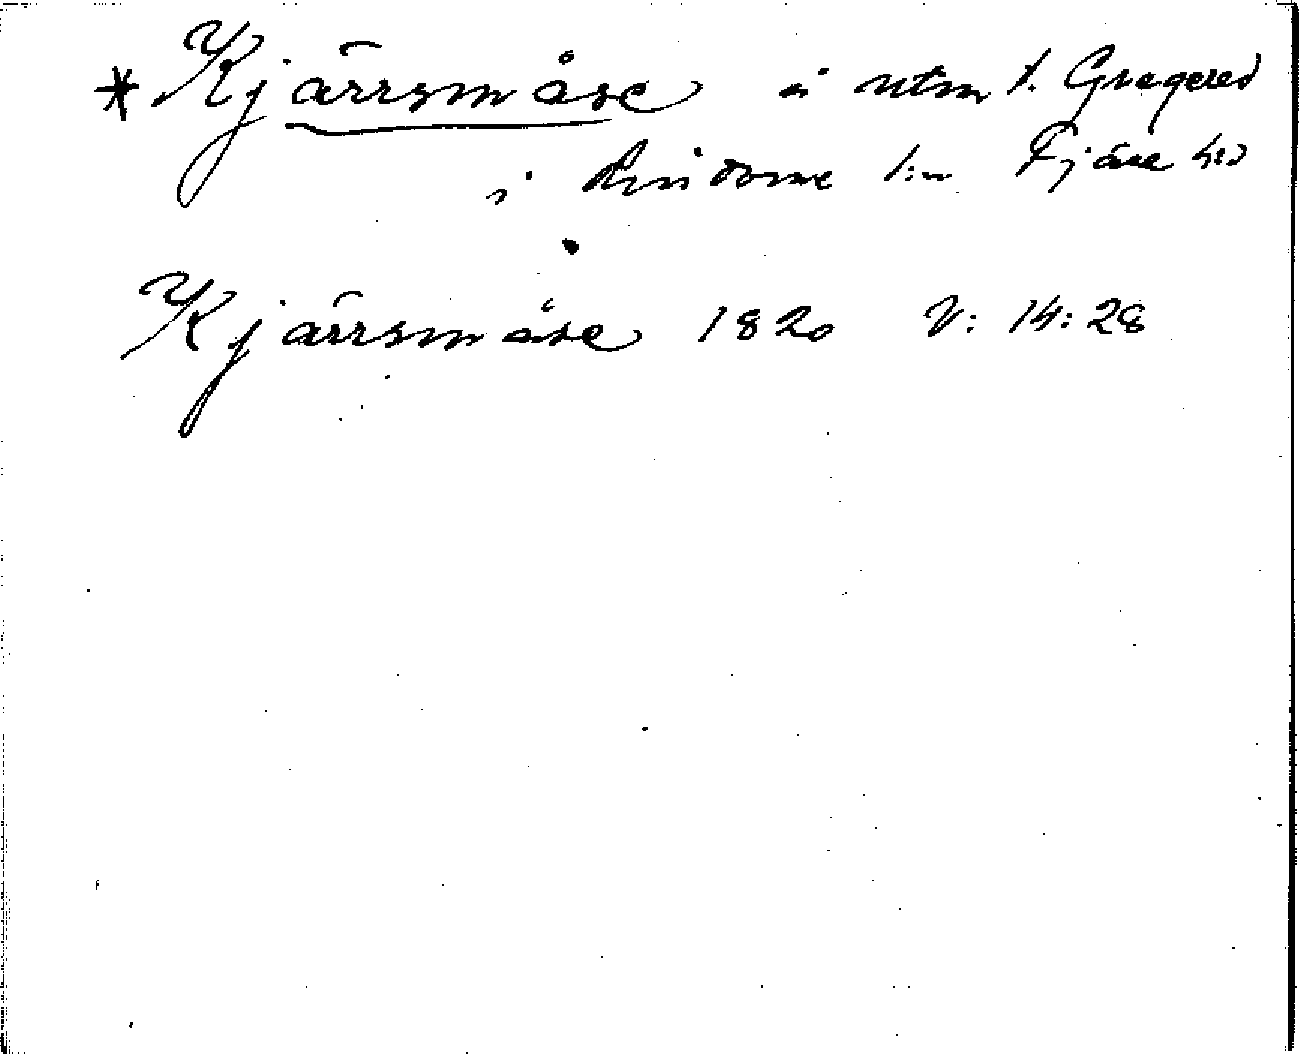 * Kjärrsmåse å utm t. Gregered
i Lindome s:n Fjäre h:d
Kjärrsmåse 1820 V: 14: 28